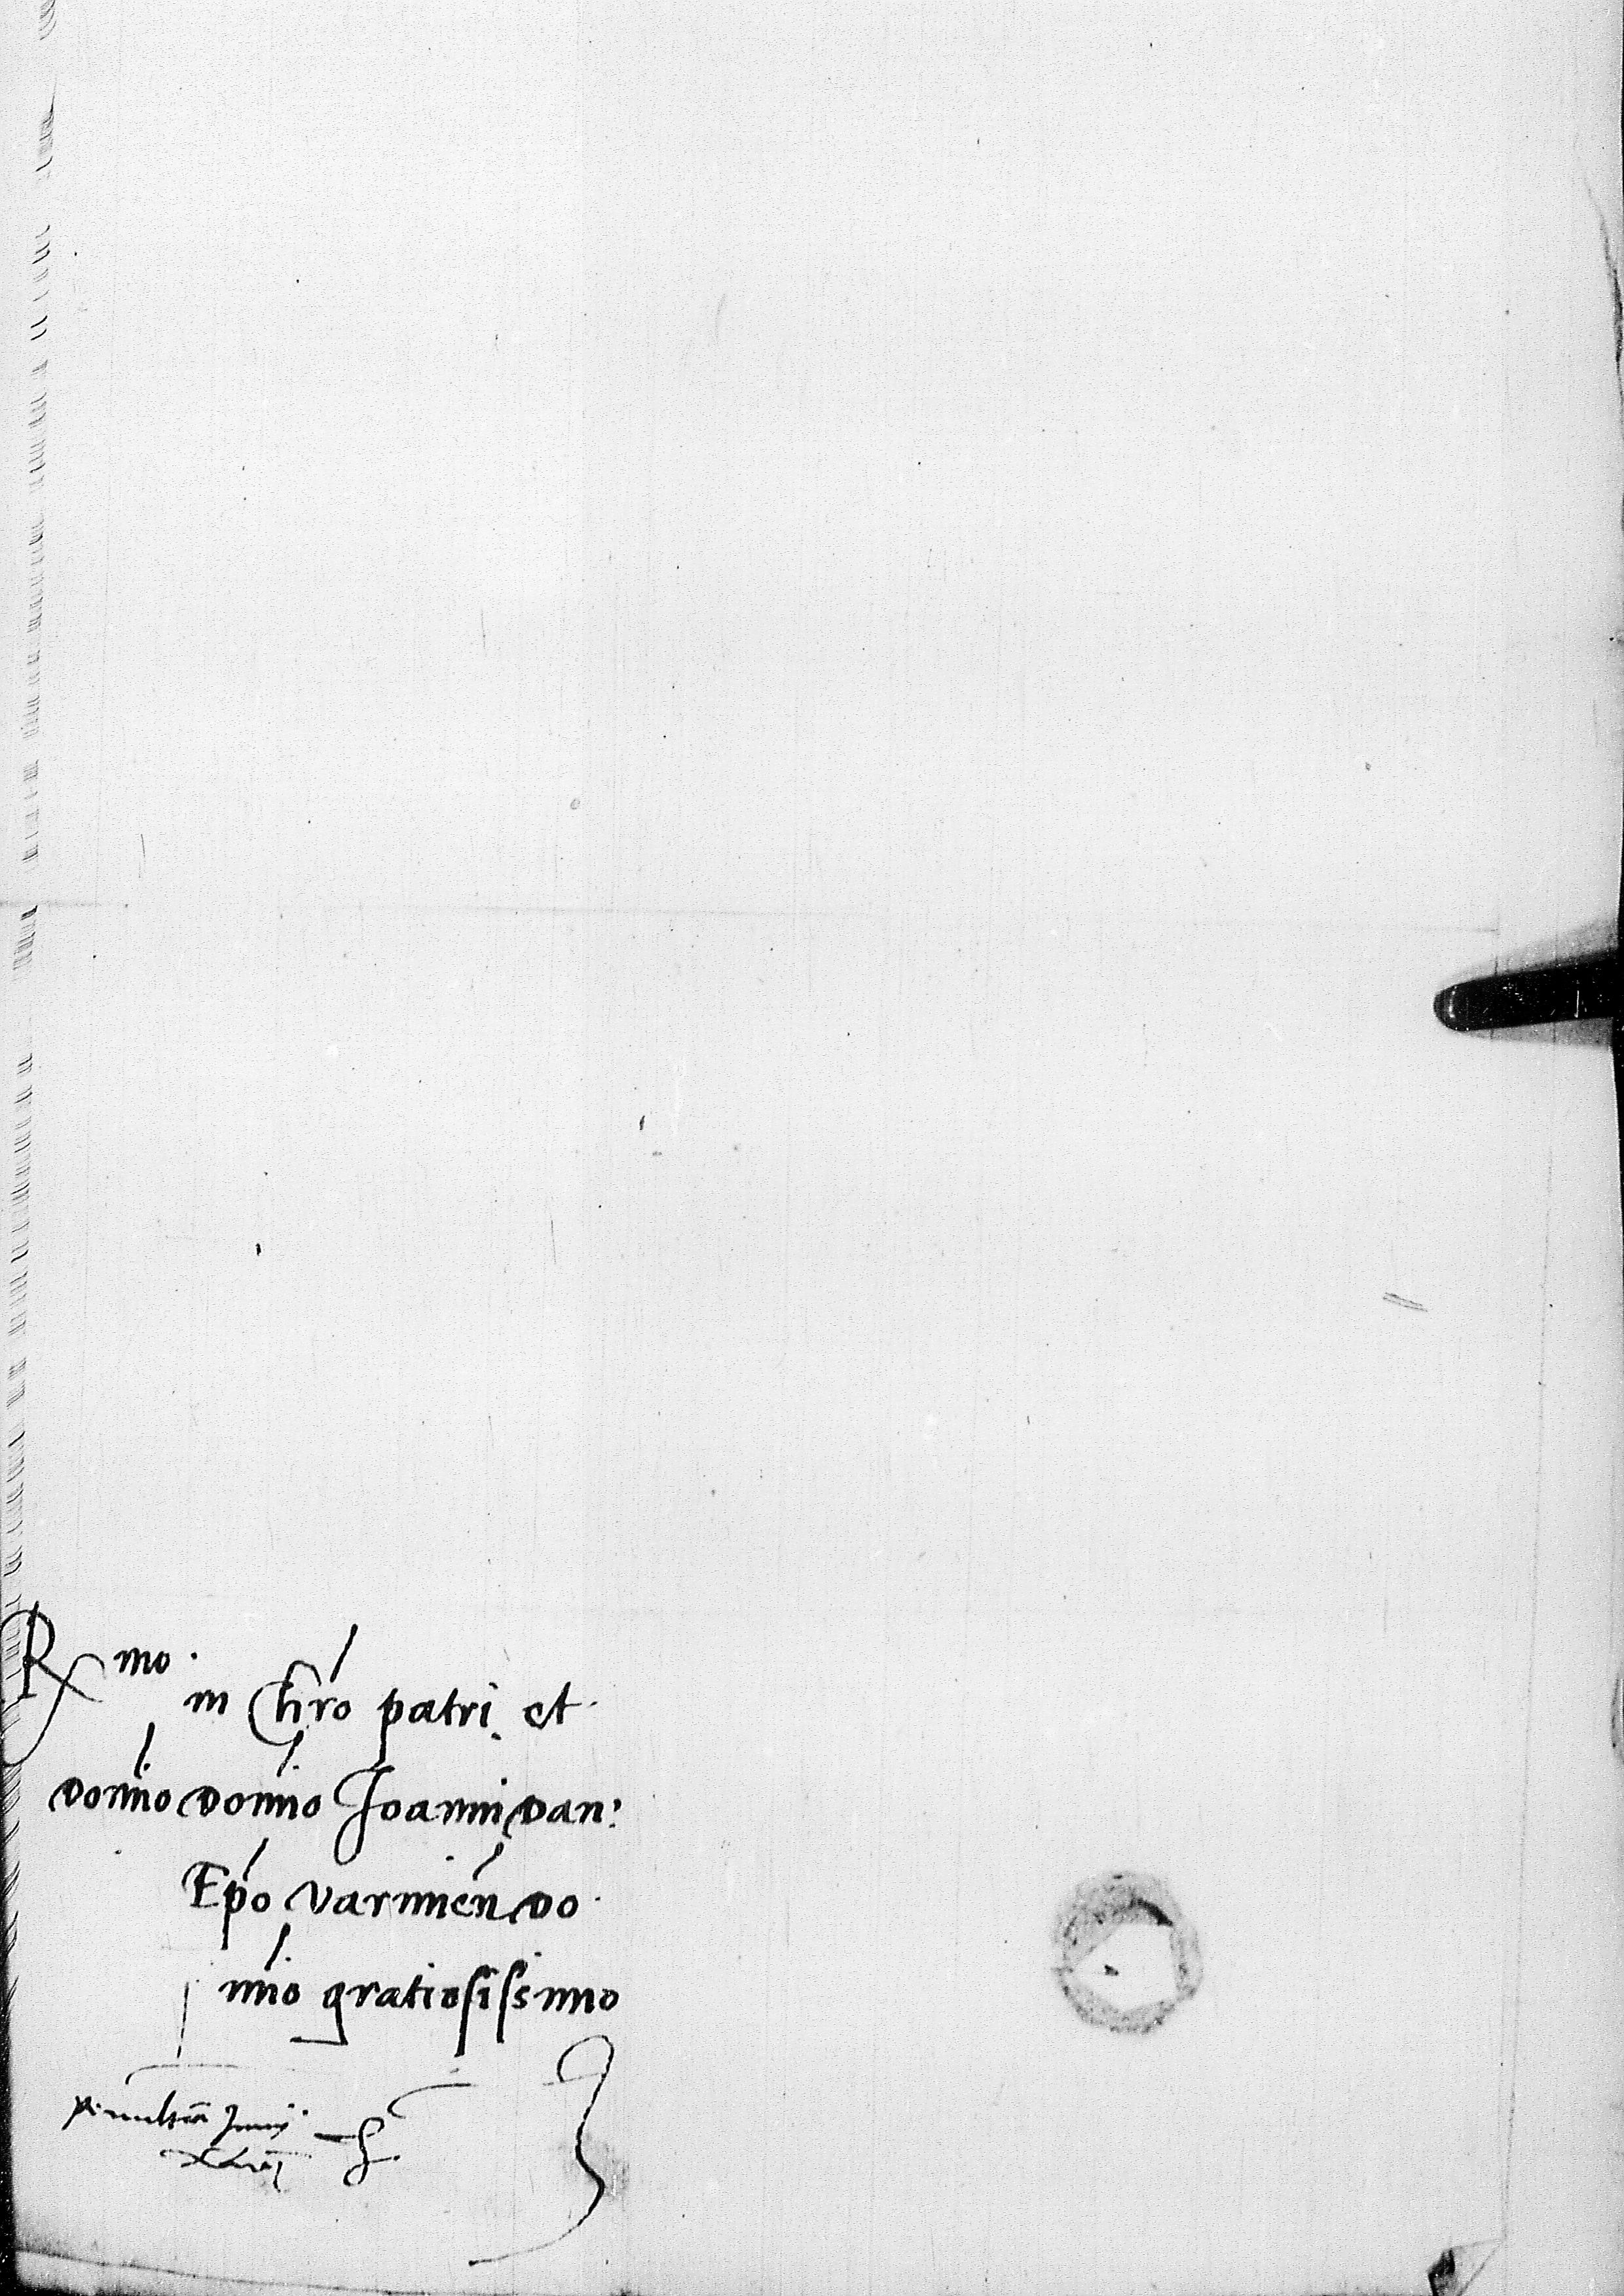 Rmo.
in Chro patri et
domno domno Joanni Dan:
Epo varmien do
mno gratiosissimo
penultia Junij